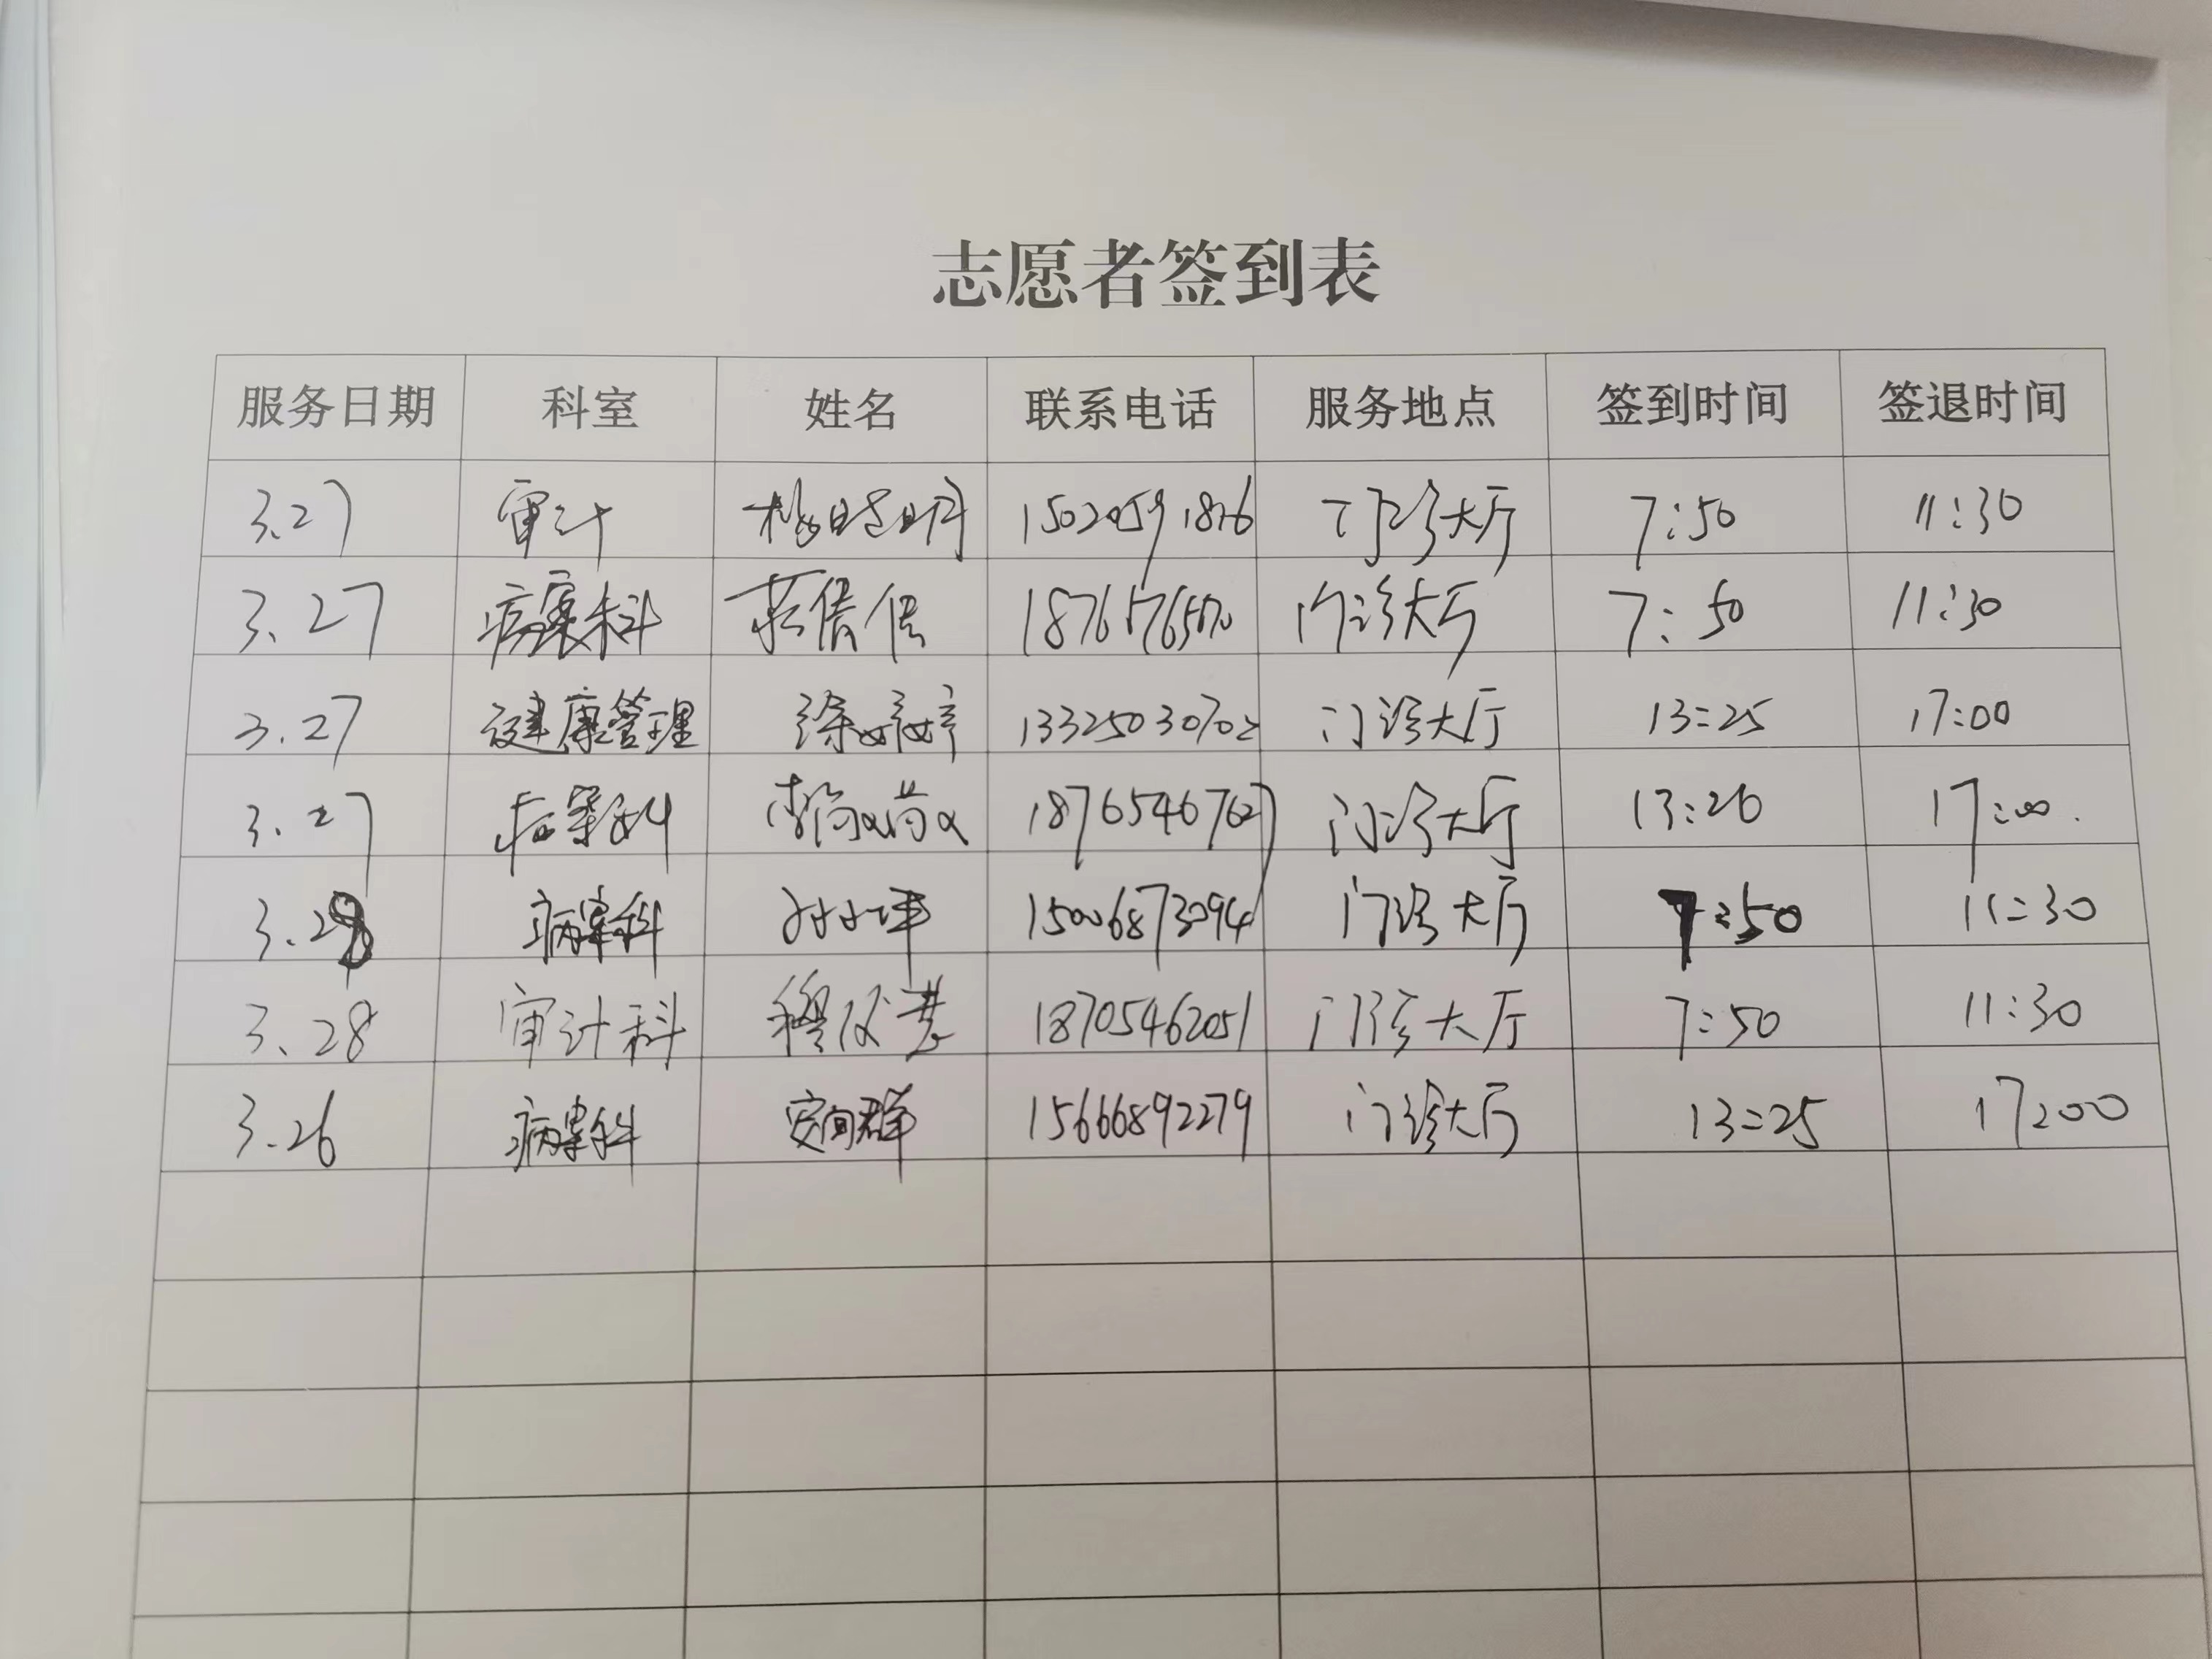 志愿者签到表
服务日期 科室 姓名 联系电话 服务地点 签到时间 签退时间
3.27 审计 门诊大厅 7:50 11:30
3.27 病案科 门诊大厅 7:50 11:30
3.27 健康管理 13325030702 门诊大厅 13:25 17:00
3.27 病案科 18765467627 门诊大厅 13:26 17:00.
3.28 病案科 15006873094 门诊大厅 7:50 11:30
3.28 审计科 18705462051 门诊大厅 7:50 11:30
3.26 病案科 15666892279 门诊大厅 13:25 17:00